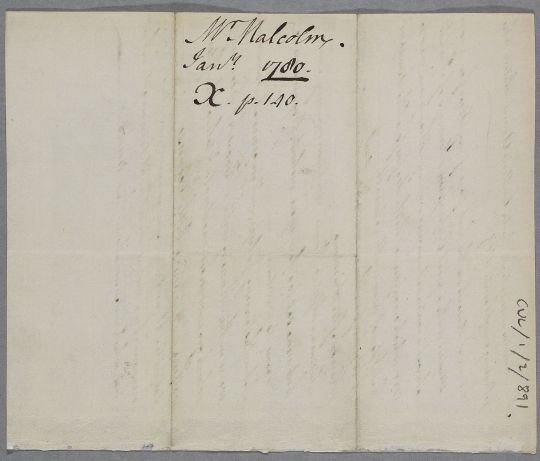 Mr. Malcolm.
Jany. 1780.
X. p. 140.
CVL/1/2/891.